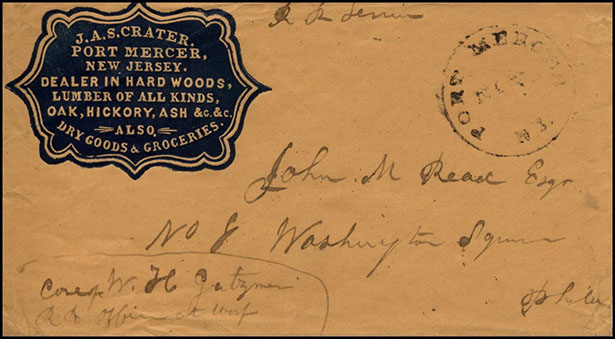 J.A.S. CRATER.
PORT MERCER,
NEW JERSEY.
DEALER IN HARD WOODS,
LUMBER OF ALL KINDS,
OAK, HICKORY, ASH &c. &c.
ALSO,
DRY GOODS & GROCERIES.
PORT MERCER
NOV
N.J.
John M Read Esqr
No 8 Washington Square
Phila
Care of W. H Gatzmer
R R Office